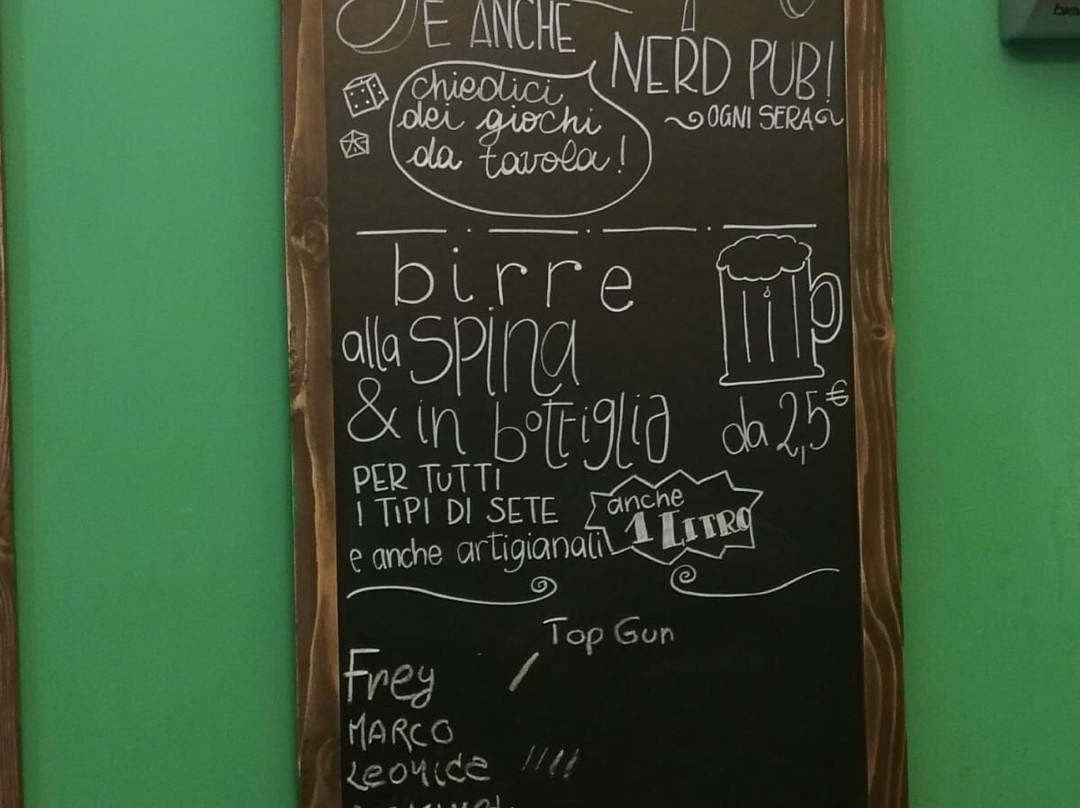 E ANCHE
NERD PUB!
OGNI SERA
chiedici
dei giochi
da tavola!
birre
alla spina
& in bottiglia
da 2,5€
PER TUTTI
I TIPI DI SETE
e anche artigianali
anche
1 LITRO
Top Gun
Frey
MARCO
Leonida